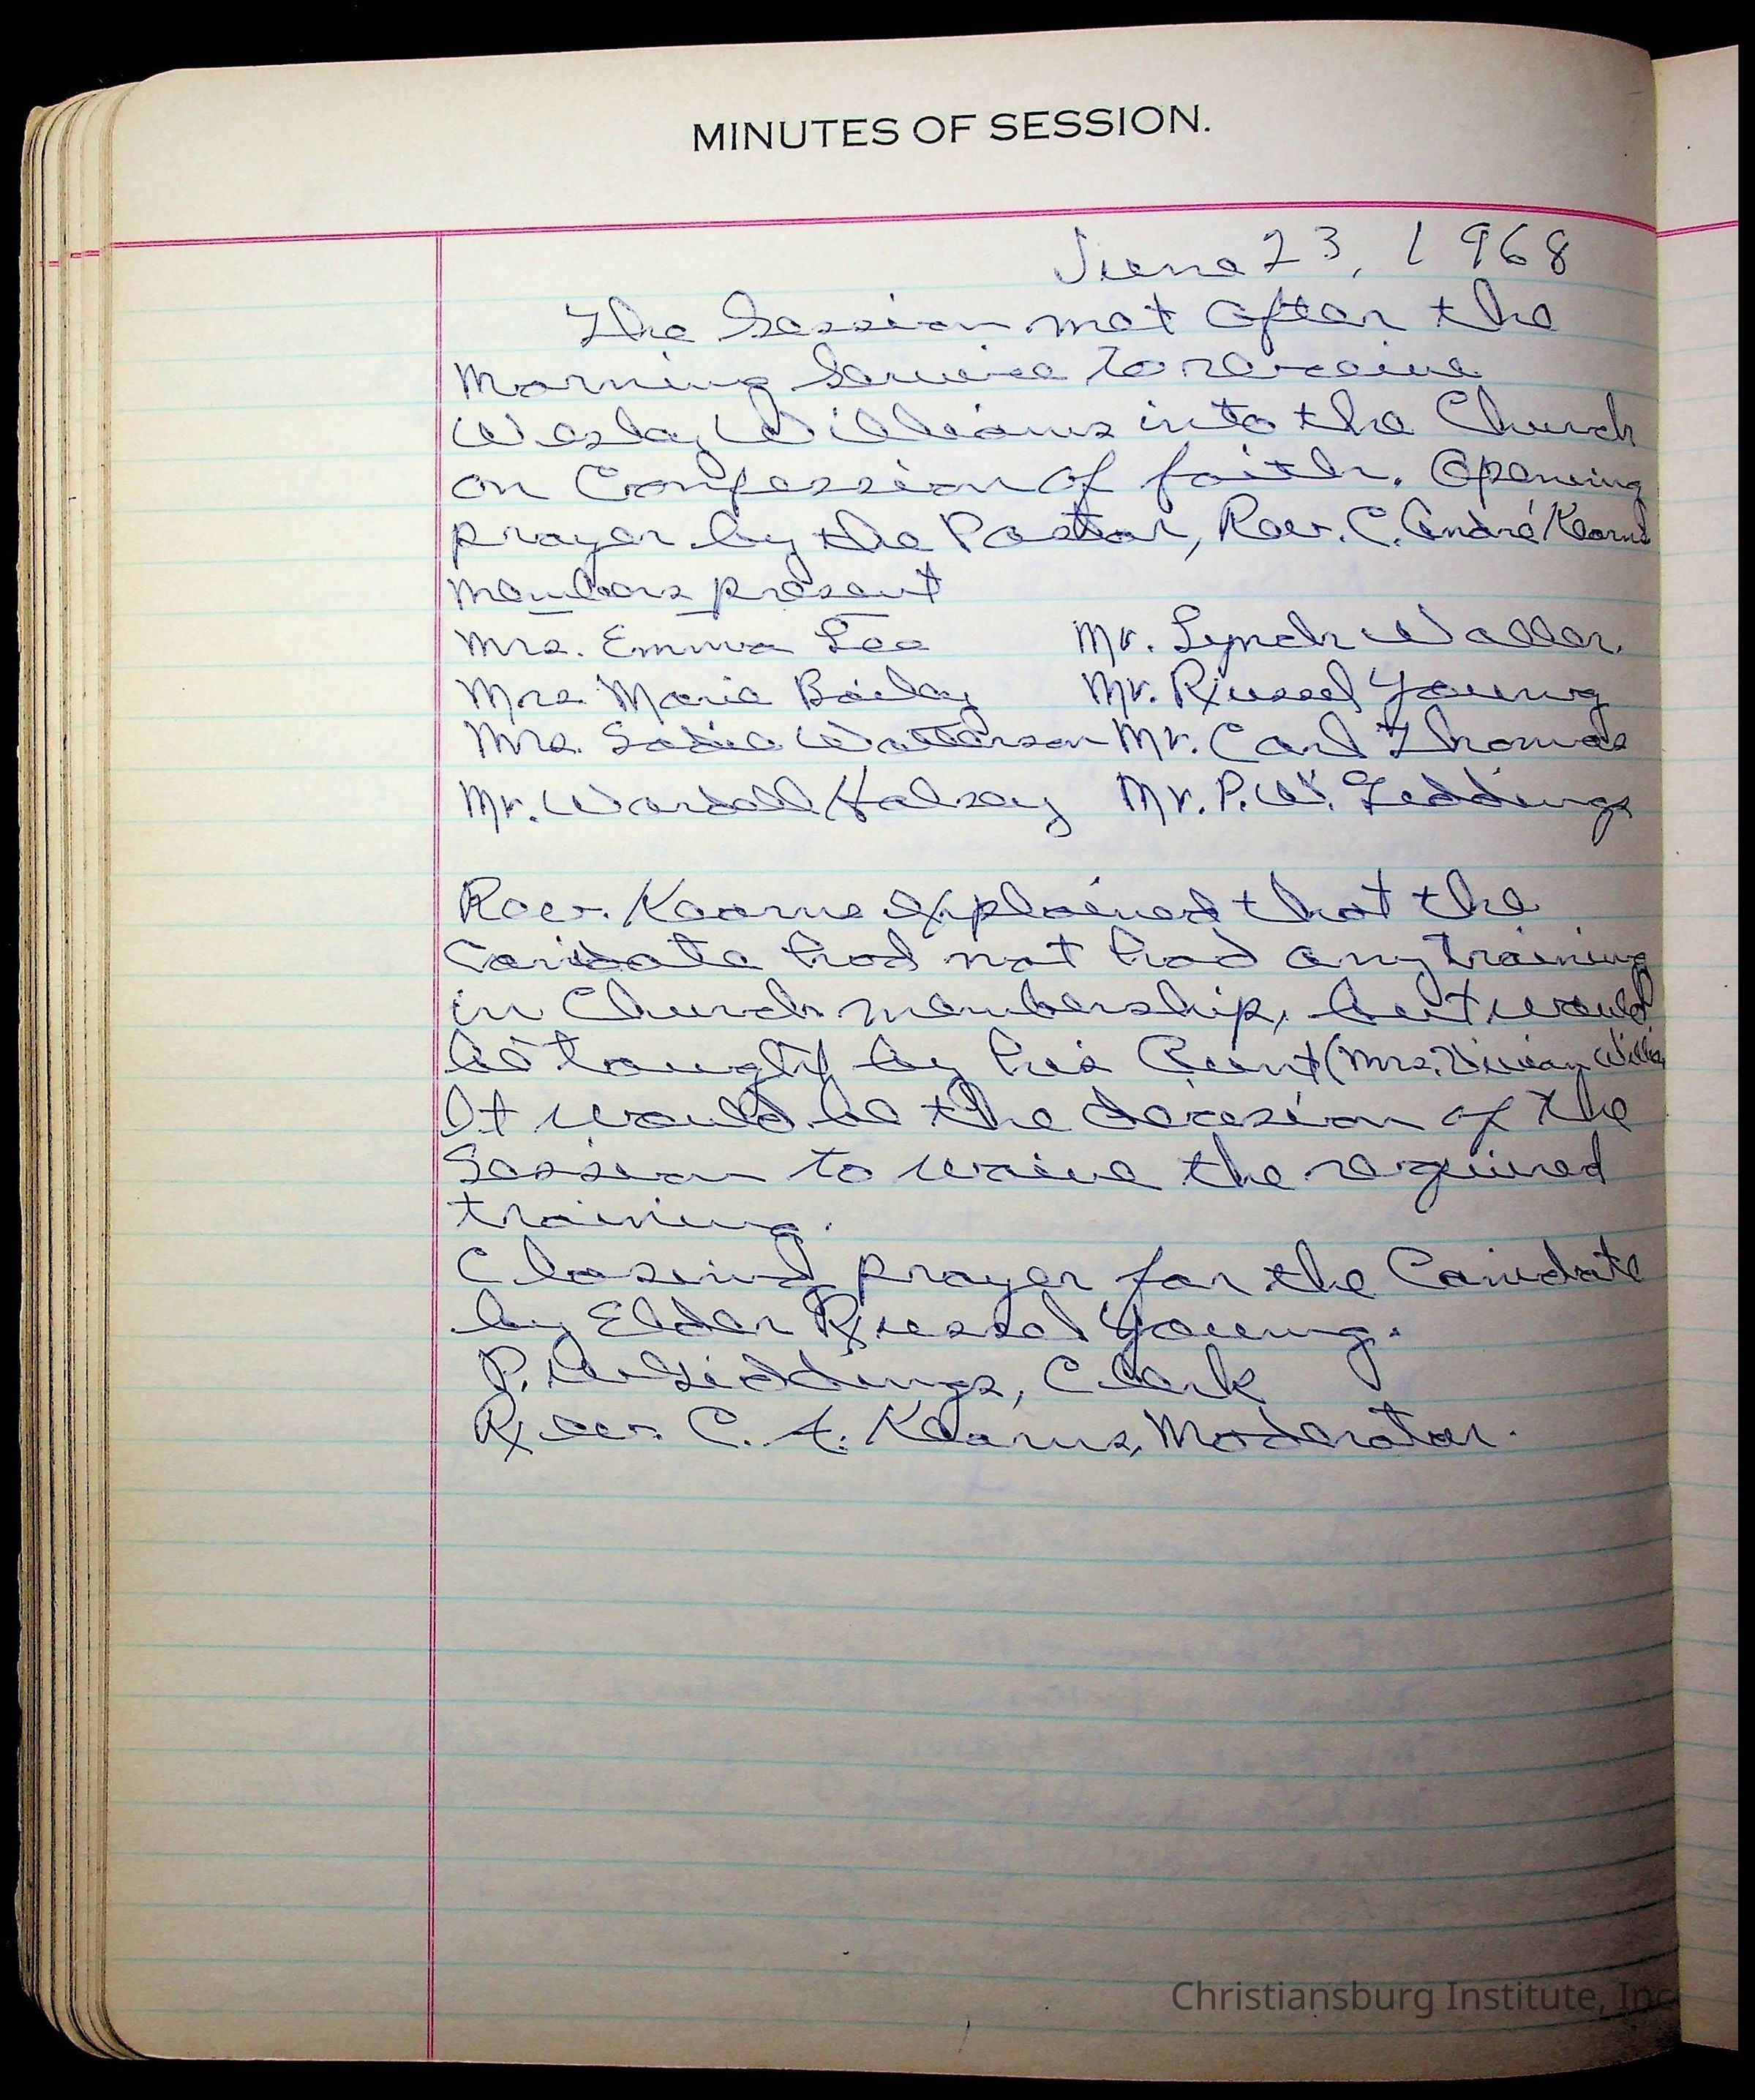 MINUTES OF SESSION.
June 23, 1968
The Session met after the
Morning Service to receive
Wesley Williams into the Church
on Confession of faith. Opening
prayer by the Pastor, Rev. C. André Kearns
Members present
Mrs. Emma Lee Mr. Lynch Waller.
Mrs. Marie Bailey Mr. Russel Young
Mrs. Sadie Watterson Mr. Carl Thomas
Mr. Wardell Halsey Mr. P. W. Giddings
Rev. Kearns explained that the
Canidate had not had any training
in Church membership, but would
be taught by his Aunt (Mrs. Vivian
It would be the decesion of the
Session to waive the required
training.
Closing prayer for the Canidate
by Elder Russel Young.
P. W. Giddings, Clerk
Rev. C. A. Kearns, Moderator.
Christiansburg Institute, Inc